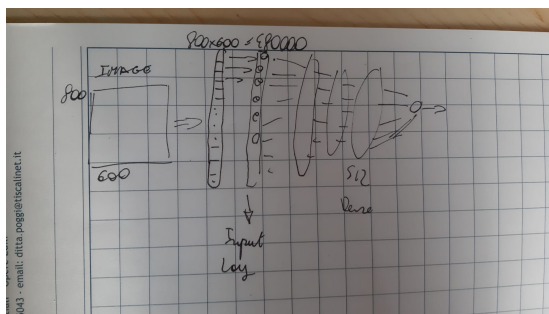 800x600 = 480000
IMAGE
800
600
512
Dense
Input
Lay
6043 - email: ditta.poggi@tiscalinet.it